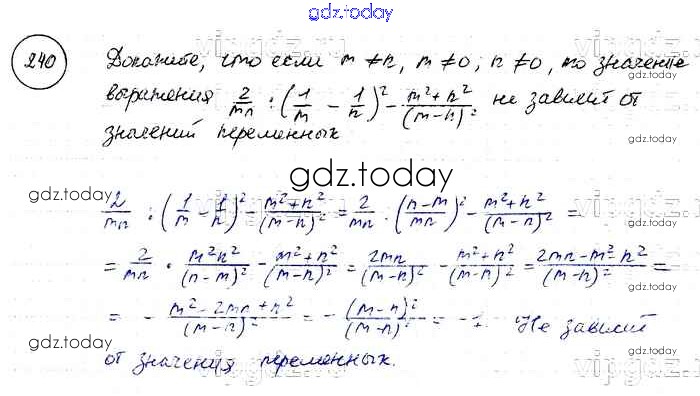 gdz.today
240 Докажите, что если m ≠ n, m ≠ 0, n ≠ 0, то значение
выражения 2/mn : (1/m − 1/n)² − (m²+n²)/(m−n)² не зависит от
значений переменных
gdz.today
gdz.today
gdz.today
2/mn : (1/m − 1/n)² − (m²+n²)/(m−n)² = 2/mn : ((n−m)/mn)² − (m²+n²)/(m−n)² =
= 2/mn · m²n²/(n−m)² − (m²+n²)/(m−n)² = 2mn/(m−n)² − (m²+n²)/(m−n)² = (2mn−m²−n²)/(m−n)² =
= − (m²−2mn+n²)/(m−n)² = − (m−n)²/(m−n)² = −1. Не зависит
gdz.today
gdz.today
от значения переменных.